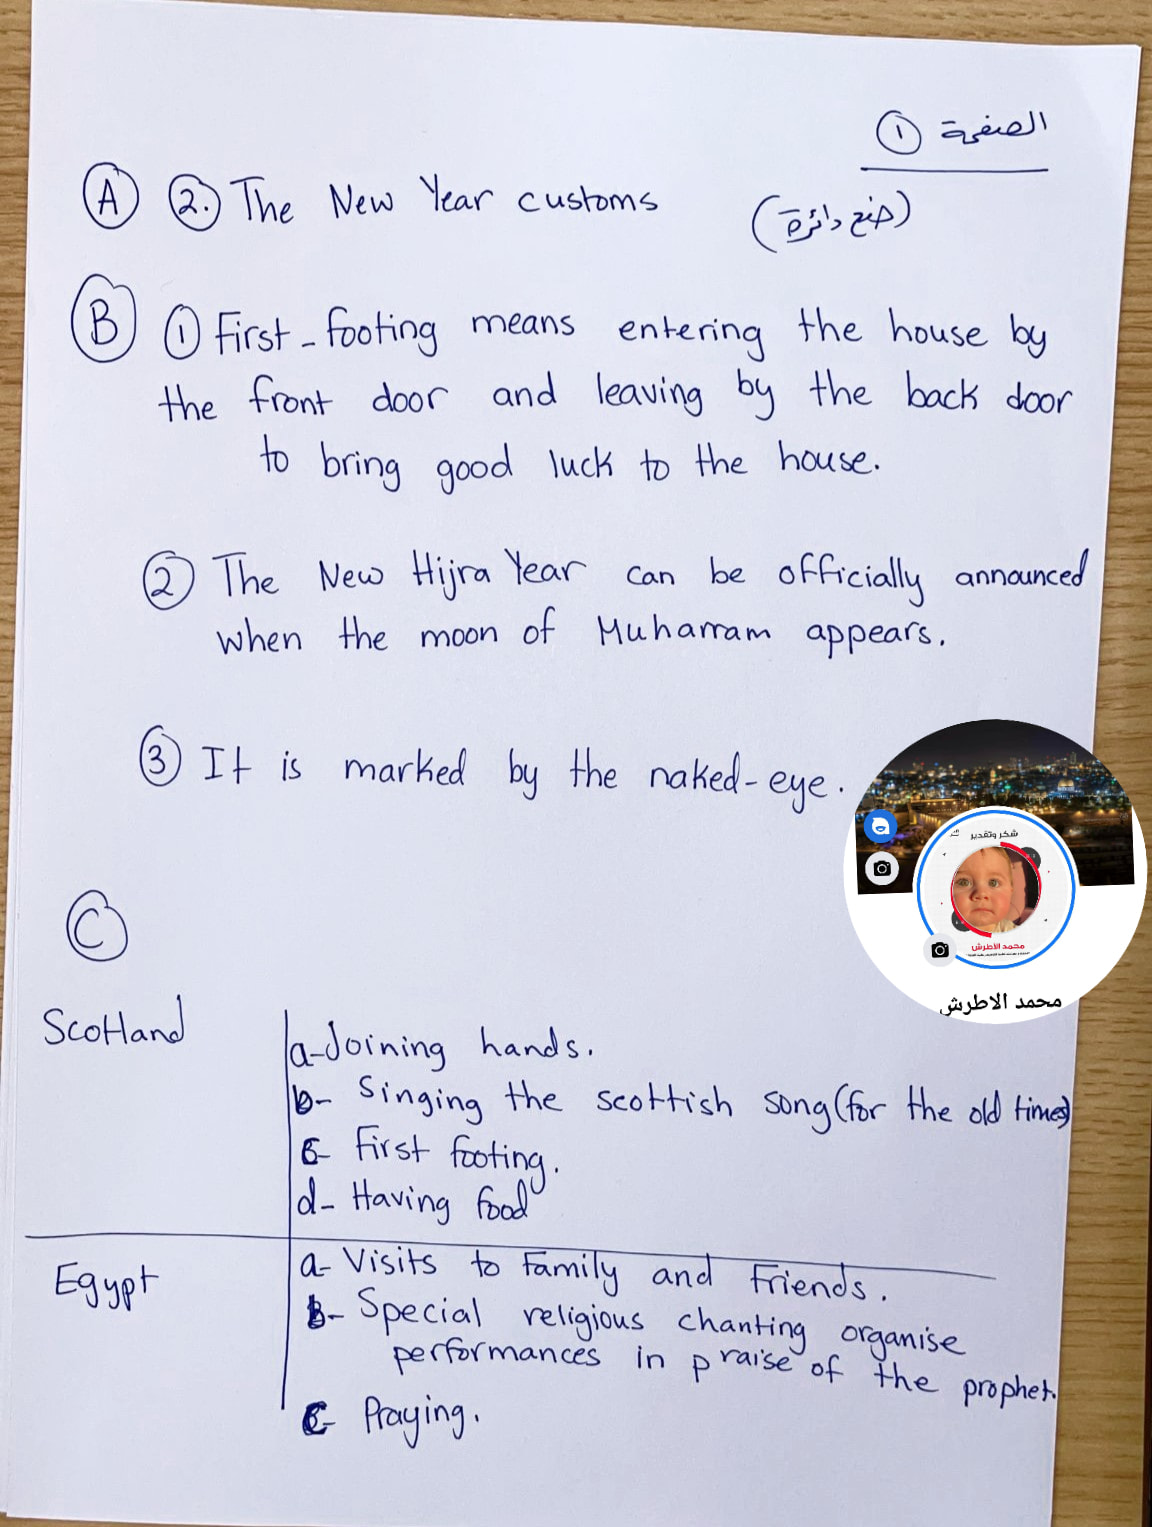 الصفحة ①
Ⓐ ②. The New Year customs
(ضع دائرة)
Ⓑ ① First-footing means entering the house by
the front door and leaving by the back door
to bring good luck to the house.
② The New Hijra Year can be officially announced
when the moon of Muharram appears.
③ It is marked by the naked-eye.
شكر وتقدير
محمد الاطرش
محمد الاطرش
Ⓒ
Scotland
a- Joining hands.
b- Singing the scottish song (for the old times)
c- First footing.
d- Having food
Egypt
a- Visits to Family and Friends.
b- Special religious chanting organise
performances in praise of the prophet.
c- Praying.